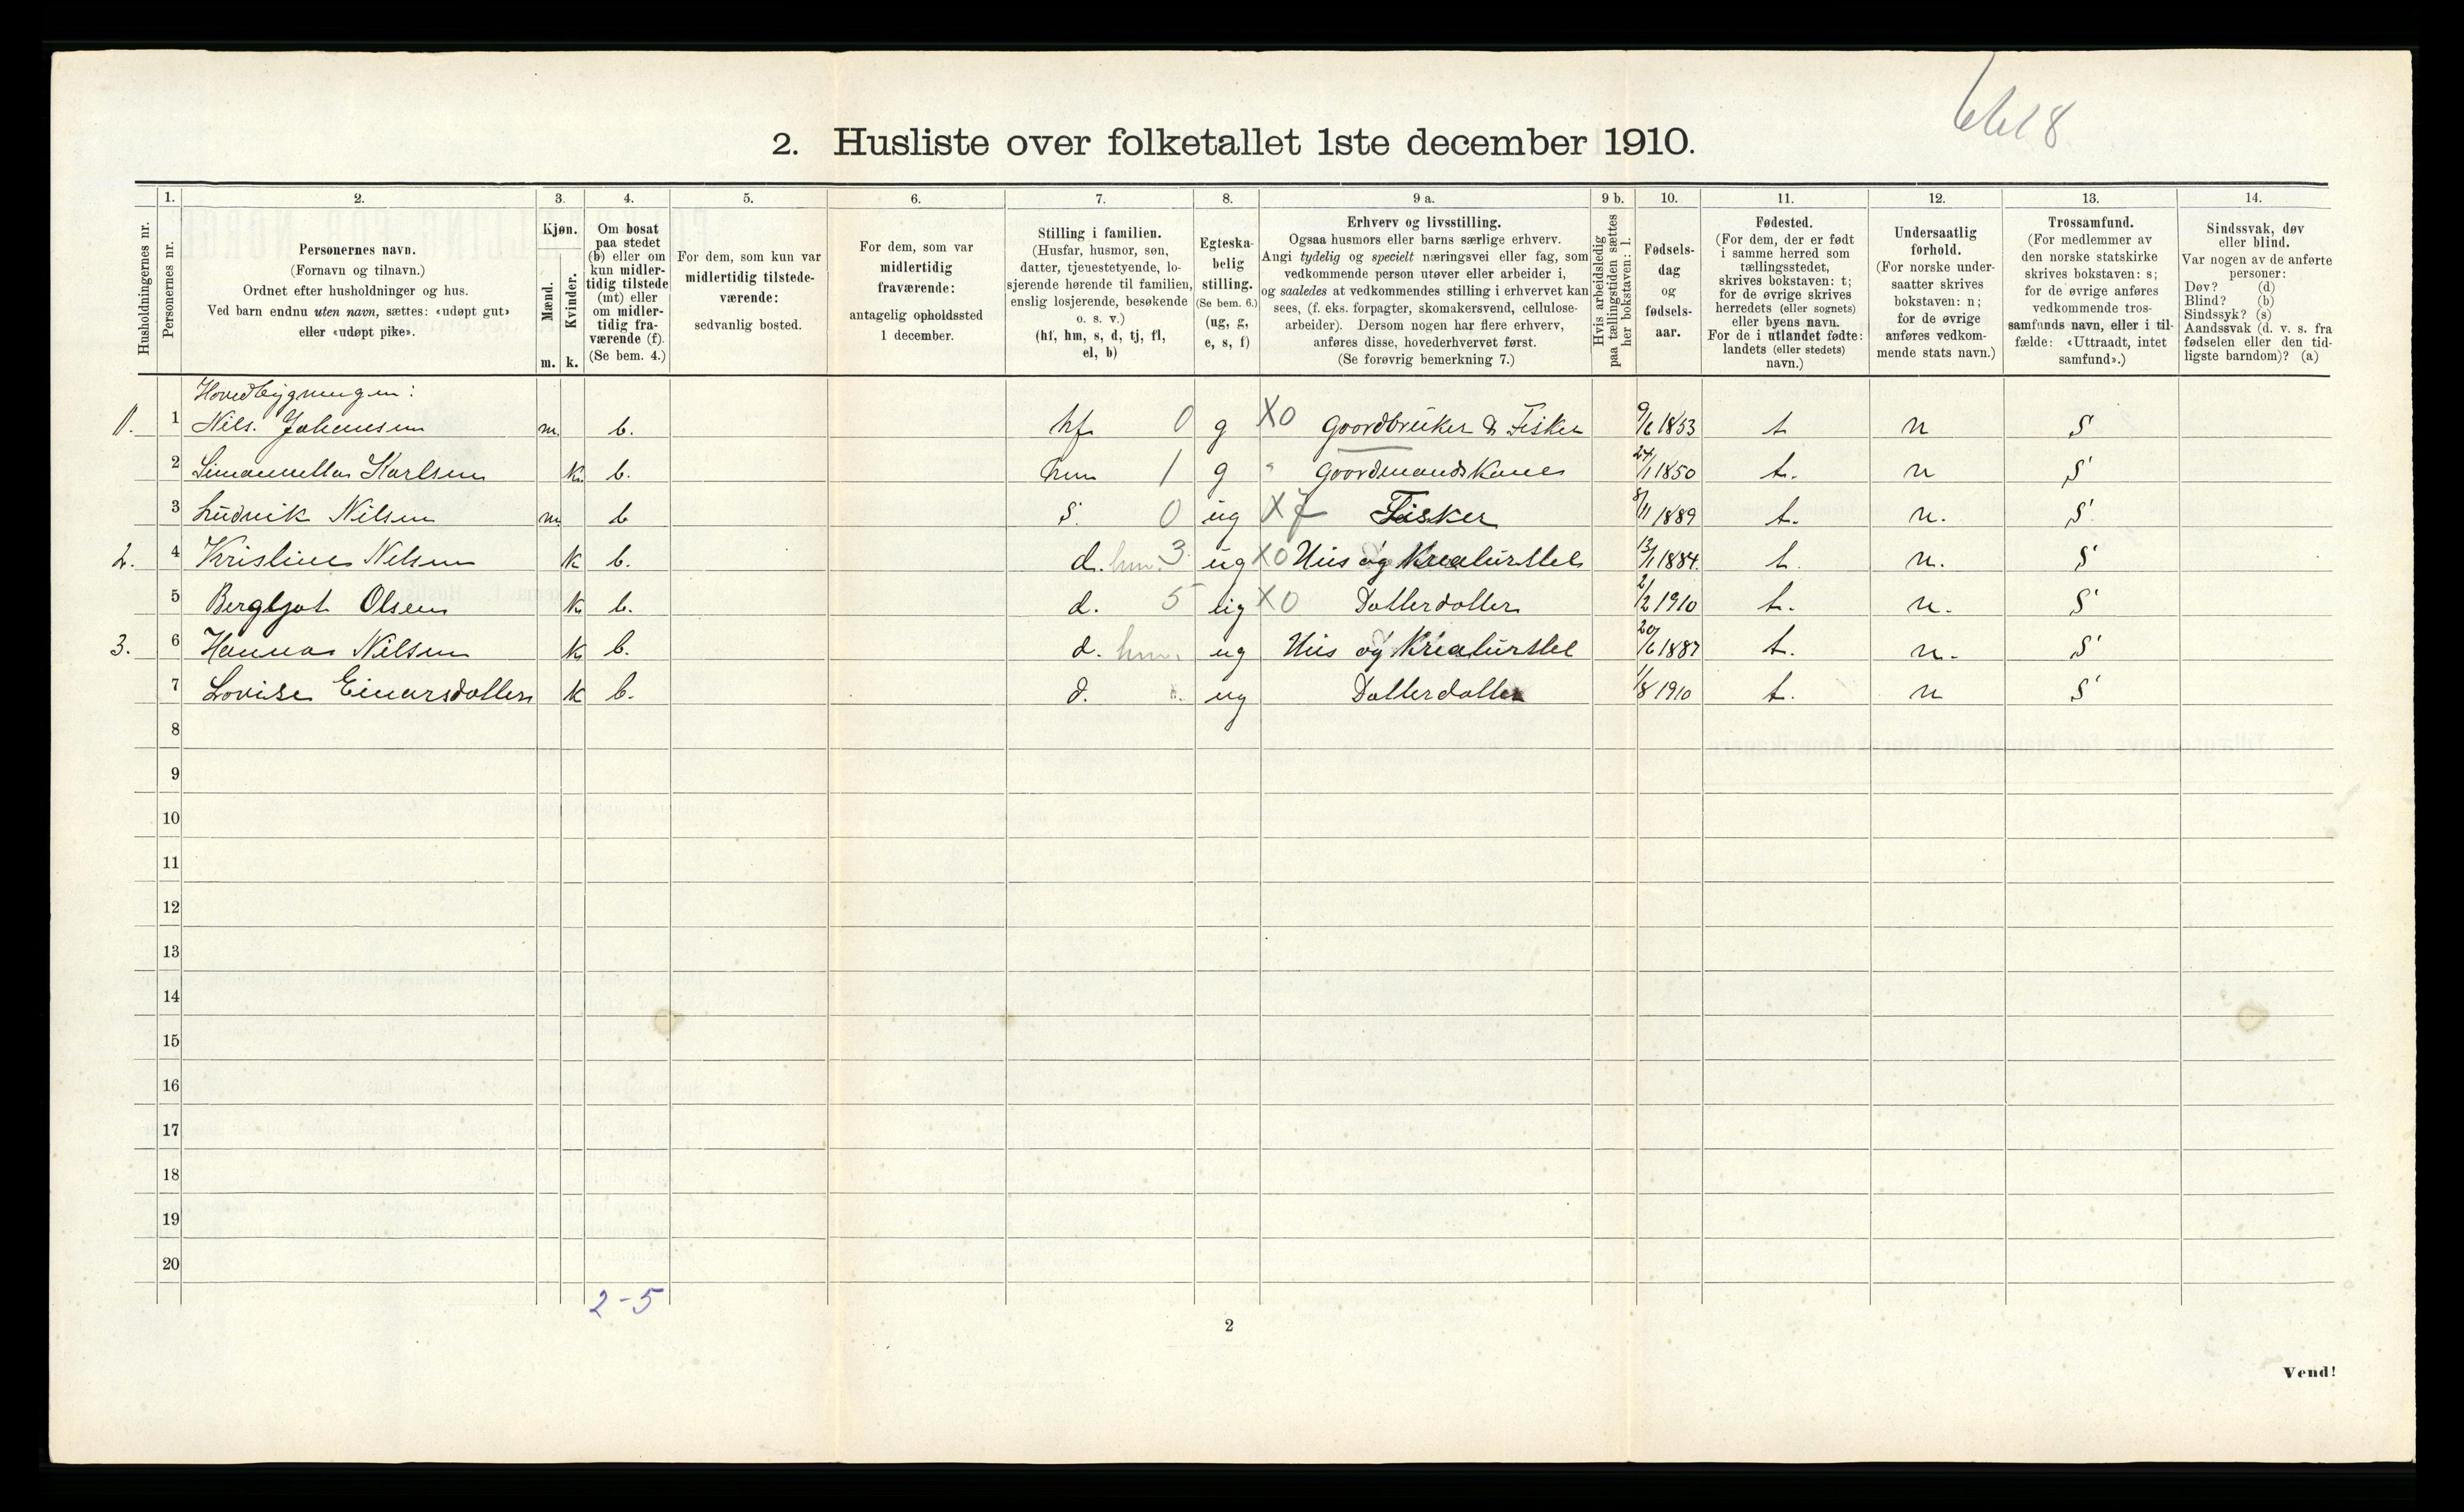 6618
2. Husliste over folketallet 1ste december 1910.
Husholdningernes nr.
1.
Personernes nr.
2.
Personernes navn.
(Fornavn og tilnavn.)
Ordnet efter husholdninger og hus.
Ved barn endnu uten navn, sættes: «udøpt gut»
eller «udøpt pike».
3.
Kjøn.
Mænd.
Kvinder.
m. k.
4.
Om bosat
paa stedet
(b) eller om
kun midler-
tidig tilstede
(mt) eller
om midler-
tidig fra-
værende (f).
(Se bem. 4.)
5.
For dem, som kun var
midlertidig tilstede-
værende:
sedvanlig bosted.
6.
For dem, som var
midlertidig
fraværende:
antagelig opholdssted
1 december.
7.
Stilling i familien.
(Husfar, husmor, søn,
datter, tjenestetyende, lo-
sjerende hørende til familien,
enslig losjerende, besøkende
o. s. v.)
(hf, hm, s, d, tj, fl,
el, b)
8.
Egteska-
belig
stilling.
(Se bem. 6.)
(ug, g,
e, s, f)
9 a.
Erhverv og livsstilling.
Ogsaa husmors eller barns særlige erhverv.
Angi tydelig og specielt næringsvei eller fag, som
vedkommende person utøver eller arbeider i,
og saaledes at vedkommendes stilling i erhvervet kan
sees, (f. eks. forpagter, skomakersvend, cellulose-
arbeider). Dersom nogen har flere erhverv,
anføres disse, hovederhvervet først.
(Se forøvrig bemerkning 7.)
9 b.
Hvis arbeidsledig
paa tællingstiden sættes
her bokstaven: l.
10.
Fødsels-
dag
og
fødsels-
aar.
11.
Fødested.
(For dem, der er født
i samme herred som
tællingsstedet,
skrives bokstaven: t;
for de øvrige skrives
herredets (eller sognets)
eller byens navn.
For de i utlandet fødte:
landets (eller stedets)
navn.)
12.
Undersaatlig
forhold.
(For norske under-
saatter skrives
bokstaven: n;
for de øvrige
anføres vedkom-
mende stats navn.)
13.
Trossamfund.
(For medlemmer av
den norske statskirke
skrives bokstaven: s;
for de øvrige anføres
vedkommende tros-
samfunds navn, eller i til-
fælde: «Uttraadt, intet
samfund».)
14.
Sindssvak, døv
eller blind.
Var nogen av de anførte
personer:
Døv? (d)
Blind? (b)
Sindssyk? (s)
Aandssvak (d. v. s. fra
fødselen eller den tid-
ligste barndom)? (a)
Hovedbygningen:
1. 1 Nils. Johansen m. b. hf 0 g X0 Gaardbruker & Fisker 9/6 1853 t n S
2 Simanella Karlsen k. b. hm 1 g " Gaardmandskone 24/1 1850 t. n S
3 Ludvik Nilsen m b s. 0 ug X7 Fisker 8/11 1889 t. n. S
2. 4 Kristine Nilsen k b. d. hm. 3 ug X0 Hus og Kreaturstel 13/1 1884. t. n. S
5 Bergljot Olsen k b. d. 5 ug X0 Datterdatter 2/2 1910 t. n. S
3. 6 Hanna Nilsen k b. d. hm. ug Hus og Kreaturstel 20/6 1887 t. n. S
7 Lovise Einarsdatter k b. d. ug Datterdatter 1/8 1910 t. n S
8
9
10
11
12
13
14
15
16
17
18
19
20
2-5
2
Vend!